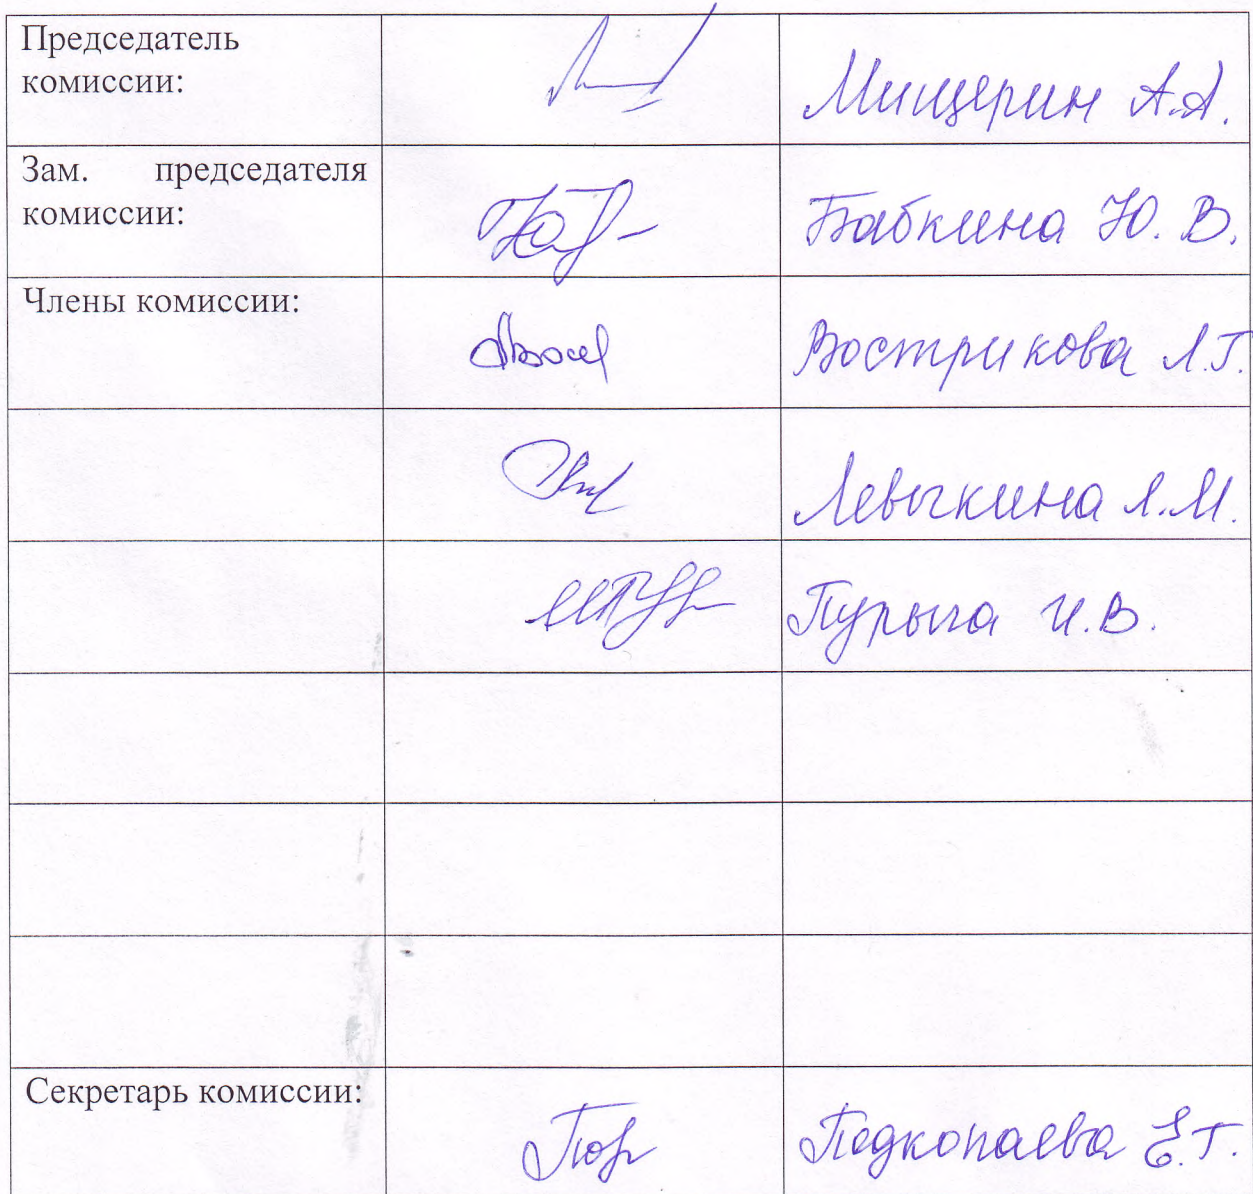 Председатель
комиссии:
Мищерин А.А.
Зам. председателя
комиссии:
Бабкина Ю. В.
Члены комиссии:
Вострикова Л.Г.
Левыкина Л.М.
Пурыга И.В.
Секретарь комиссии:
Подкопаева Е.Г.